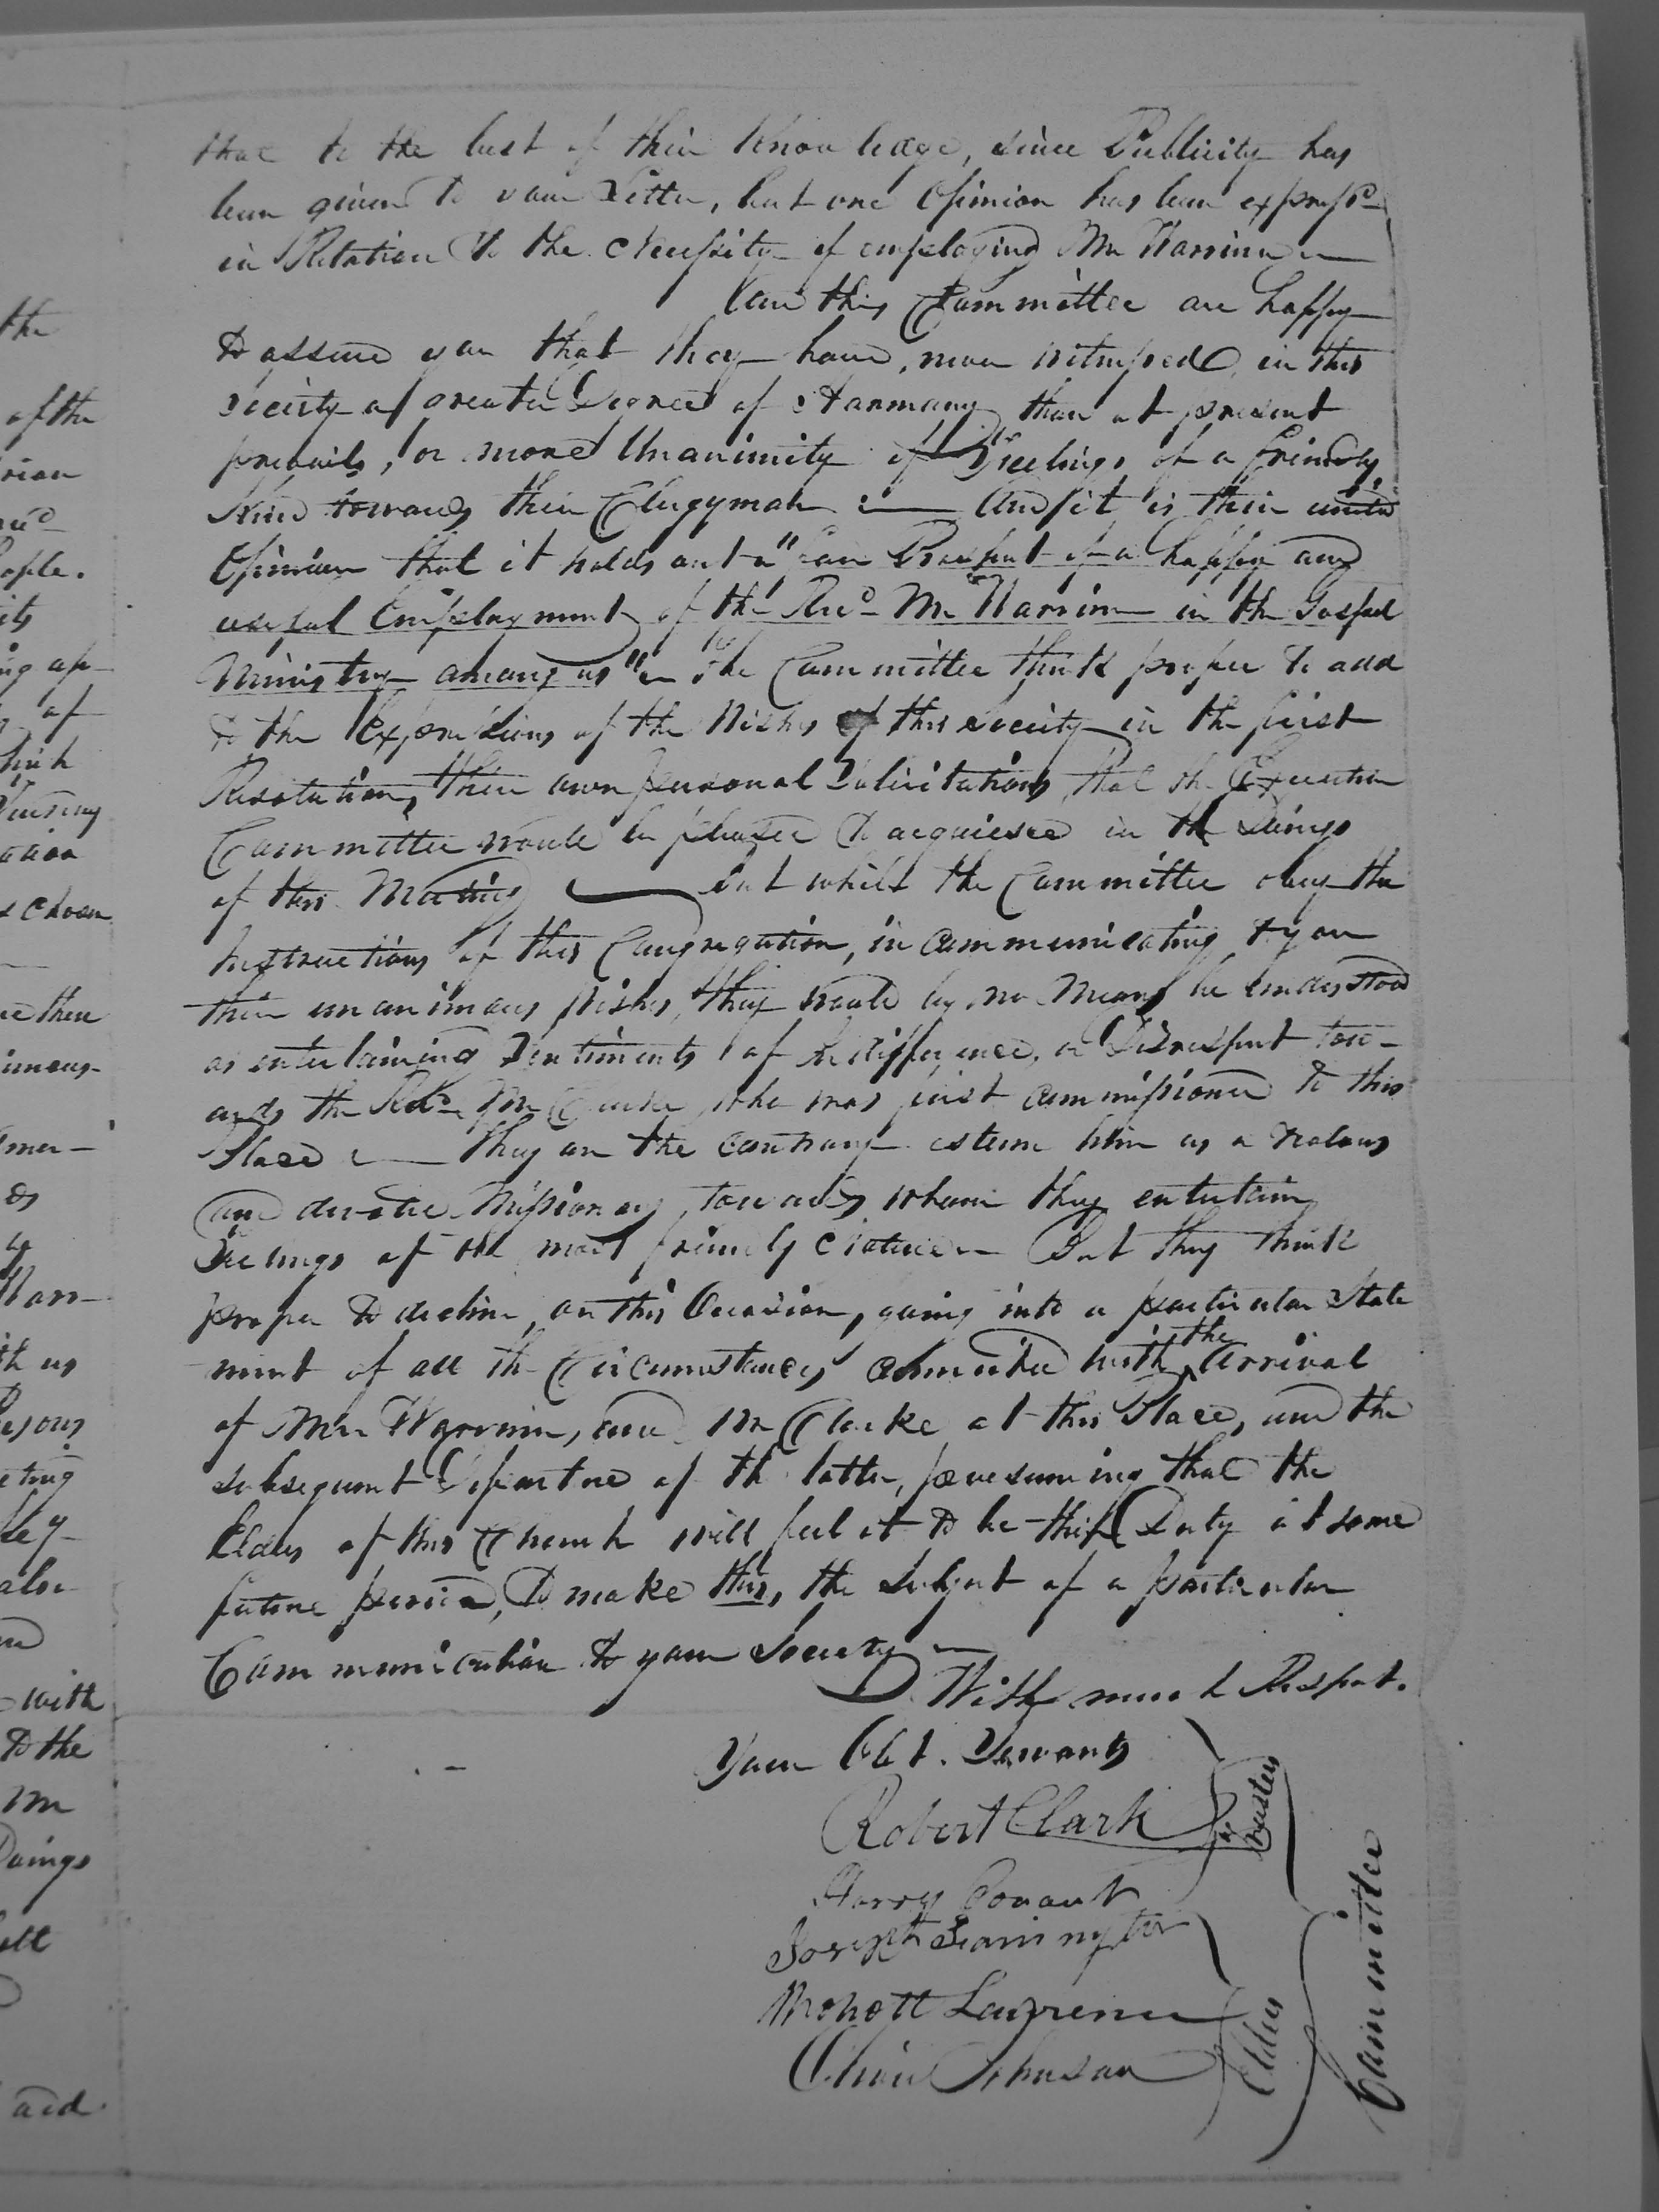 the
of the
rian
ople.
its
ng ap-
of
hich
ation
s chosen
re there
imous-
mer-
Warr-
th us
eting
also
with
to the
Mr
Doings
aid.
that to the best of their Knowledge, since Publicity has
been given to your Letter, but one Opinion has been expressd
in Relation to the Necessity of employing Mr Warriner —
And this Committee are happy
to assure you that they have, never witnessed, in this
Society a greater Degree of Harmony than at present
prevails, or more Unanimity of Feelings of a friendly
kind towards their Clergyman :— And it is their united
Opinion that it holds out a "fair Prospect of a happy and
useful Employment of the Revd Mr Warriner in the Gospel
Ministry among us" — The Committee think proper to add
to the Expressions of the Wishes of this Society in the first
Resolution, their own personal Solicitations, that the Executive
Committee would be pleased to acquiesce in the Doings
of this Meeting — but whilst the Committee obey the
Instructions of this Congregation, in communicating to you
their unanimous Wishes, they would by no Means be understood
as entertaining Sentiments of Indifference, or Disrespect tow-
ards the Revd Mr Clarke, who was first commissioned to this
Place — they on the contrary esteem him as a zealous
and devoted Missionary, towards whom they entertain
Feelings of the most friendly Nature — But they think
proper to decline, on this Occasion, going into a particular State
ment of all the Circumstances connected with the Arrival
of Mr Warriner, and Mr Clarke at this Place, and the
subsequent Departure of the latter, presuming that the
Elders of this Church will feel it to be their Duty at some
future period, to make this, the subject of a particular
Communication to your Society —
With much Respect.
Your Obt. Servants
Robert Clark
Harry Conant
Joseph Farrington
Lawrence
Oliver Johnson
Trustees
Elders
Committee